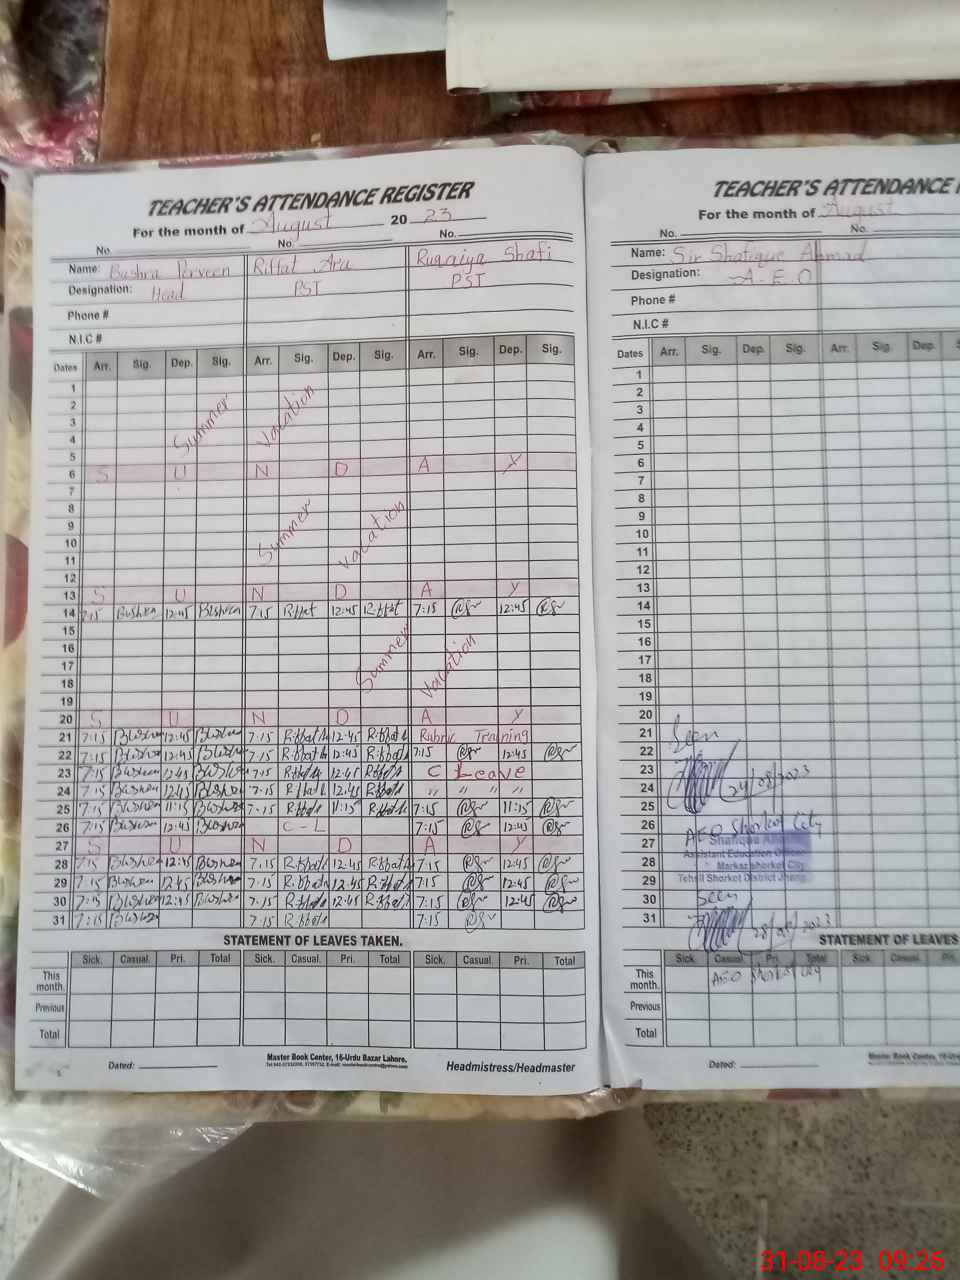 TEACHER'S ATTENDANCE REGISTER
For the month of August 20 23
No. No. No.
Name: Bushra Perveen Riffat Ara Ruqaiya Shafi
Designation: Head PST PST
Phone #
N.I.C #
Dates Arr. Sig. Dep. Sig. Arr. Sig. Dep. Sig. Arr. Sig. Dep. Sig.
1
2
3
4
Summer Vacation
5
6 S U N D A Y
7
8
9
10
Summer vacation
11
12
13 S U N D A Y
14 7:15 Bushra 12:45 Bushra 7:15 Riffat 12:45 Riffat 7:15 12:45
15
16
17
Summer vacation
18
19
20 S U N D A Y
21 7:15 Bushra 12:45 Bushra 7:15 Riffat 12:45 Riffat Rubric Training
22 7:15 Bushra 12:45 Bushra 7:15 Riffat 12:45 Riffat 7:15 12:45
23 7:15 Bushra 12:45 Bushra 7:15 Riffat 12:45 Riffat C Leave
24 7:15 Bushra 12:45 Bushra 7:15 Riffat 12:45 Riffat " " " "
25 7:15 Bushra 11:15 Bushra 7:15 Riffat 11:15 Riffat 7:15 11:15
26 7:15 Bushra 12:45 Bushra C-L 7:15 12:45
27 S U N D A Y
28 7:15 Bushra 12:45 Bushra 7:15 Riffat 12:45 Riffat 7:15 12:45
29 7:15 Bushra 12:45 Bushra 7:15 Riffat 12:45 Riffat 7:15 12:45
30 7:15 Bushra 12:45 Bushra 7:15 Riffat 12:45 Riffat 7:15 12:45
31 7:15 Bushra 7:15 Riffat 7:15
STATEMENT OF LEAVES TAKEN.
Sick. Casual. Pri. Total Sick. Casual. Pri. Total Sick. Casual. Pri. Total
This month.
Previous
Total
Dated:
Master Book Center, 16-Urdu Bazar Lahore.
Headmistress/Headmaster
TEACHER'S ATTENDANCE
For the month of August
No. No.
Name: Sir Shafique Ahmad
Designation: A.E.O
Phone #
N.I.C #
Dates Arr. Sig. Dep. Sig. Arr. Sig. Dep.
1
2
3
4
5
6
7
8
9
10
11
12
13
14
15
16
17
18
19
20
21
Seen
22
23
24 24/08/2023
25
26 AEO Shorkot City
27 Shafique
28 Assistant Education Officer
Markaz Shorkot City
29 Tehsil Shorkot District Jhang
30 Seen
31 28/08/2023
STATEMENT OF LEAVES
Sick. Casual. Pri. Total Sick. Casual. Pri.
This month. AEO Shorkot City
Previous
Total
Dated:
Master Book Center, 16-Urdu Bazar
31-08-23 09:26